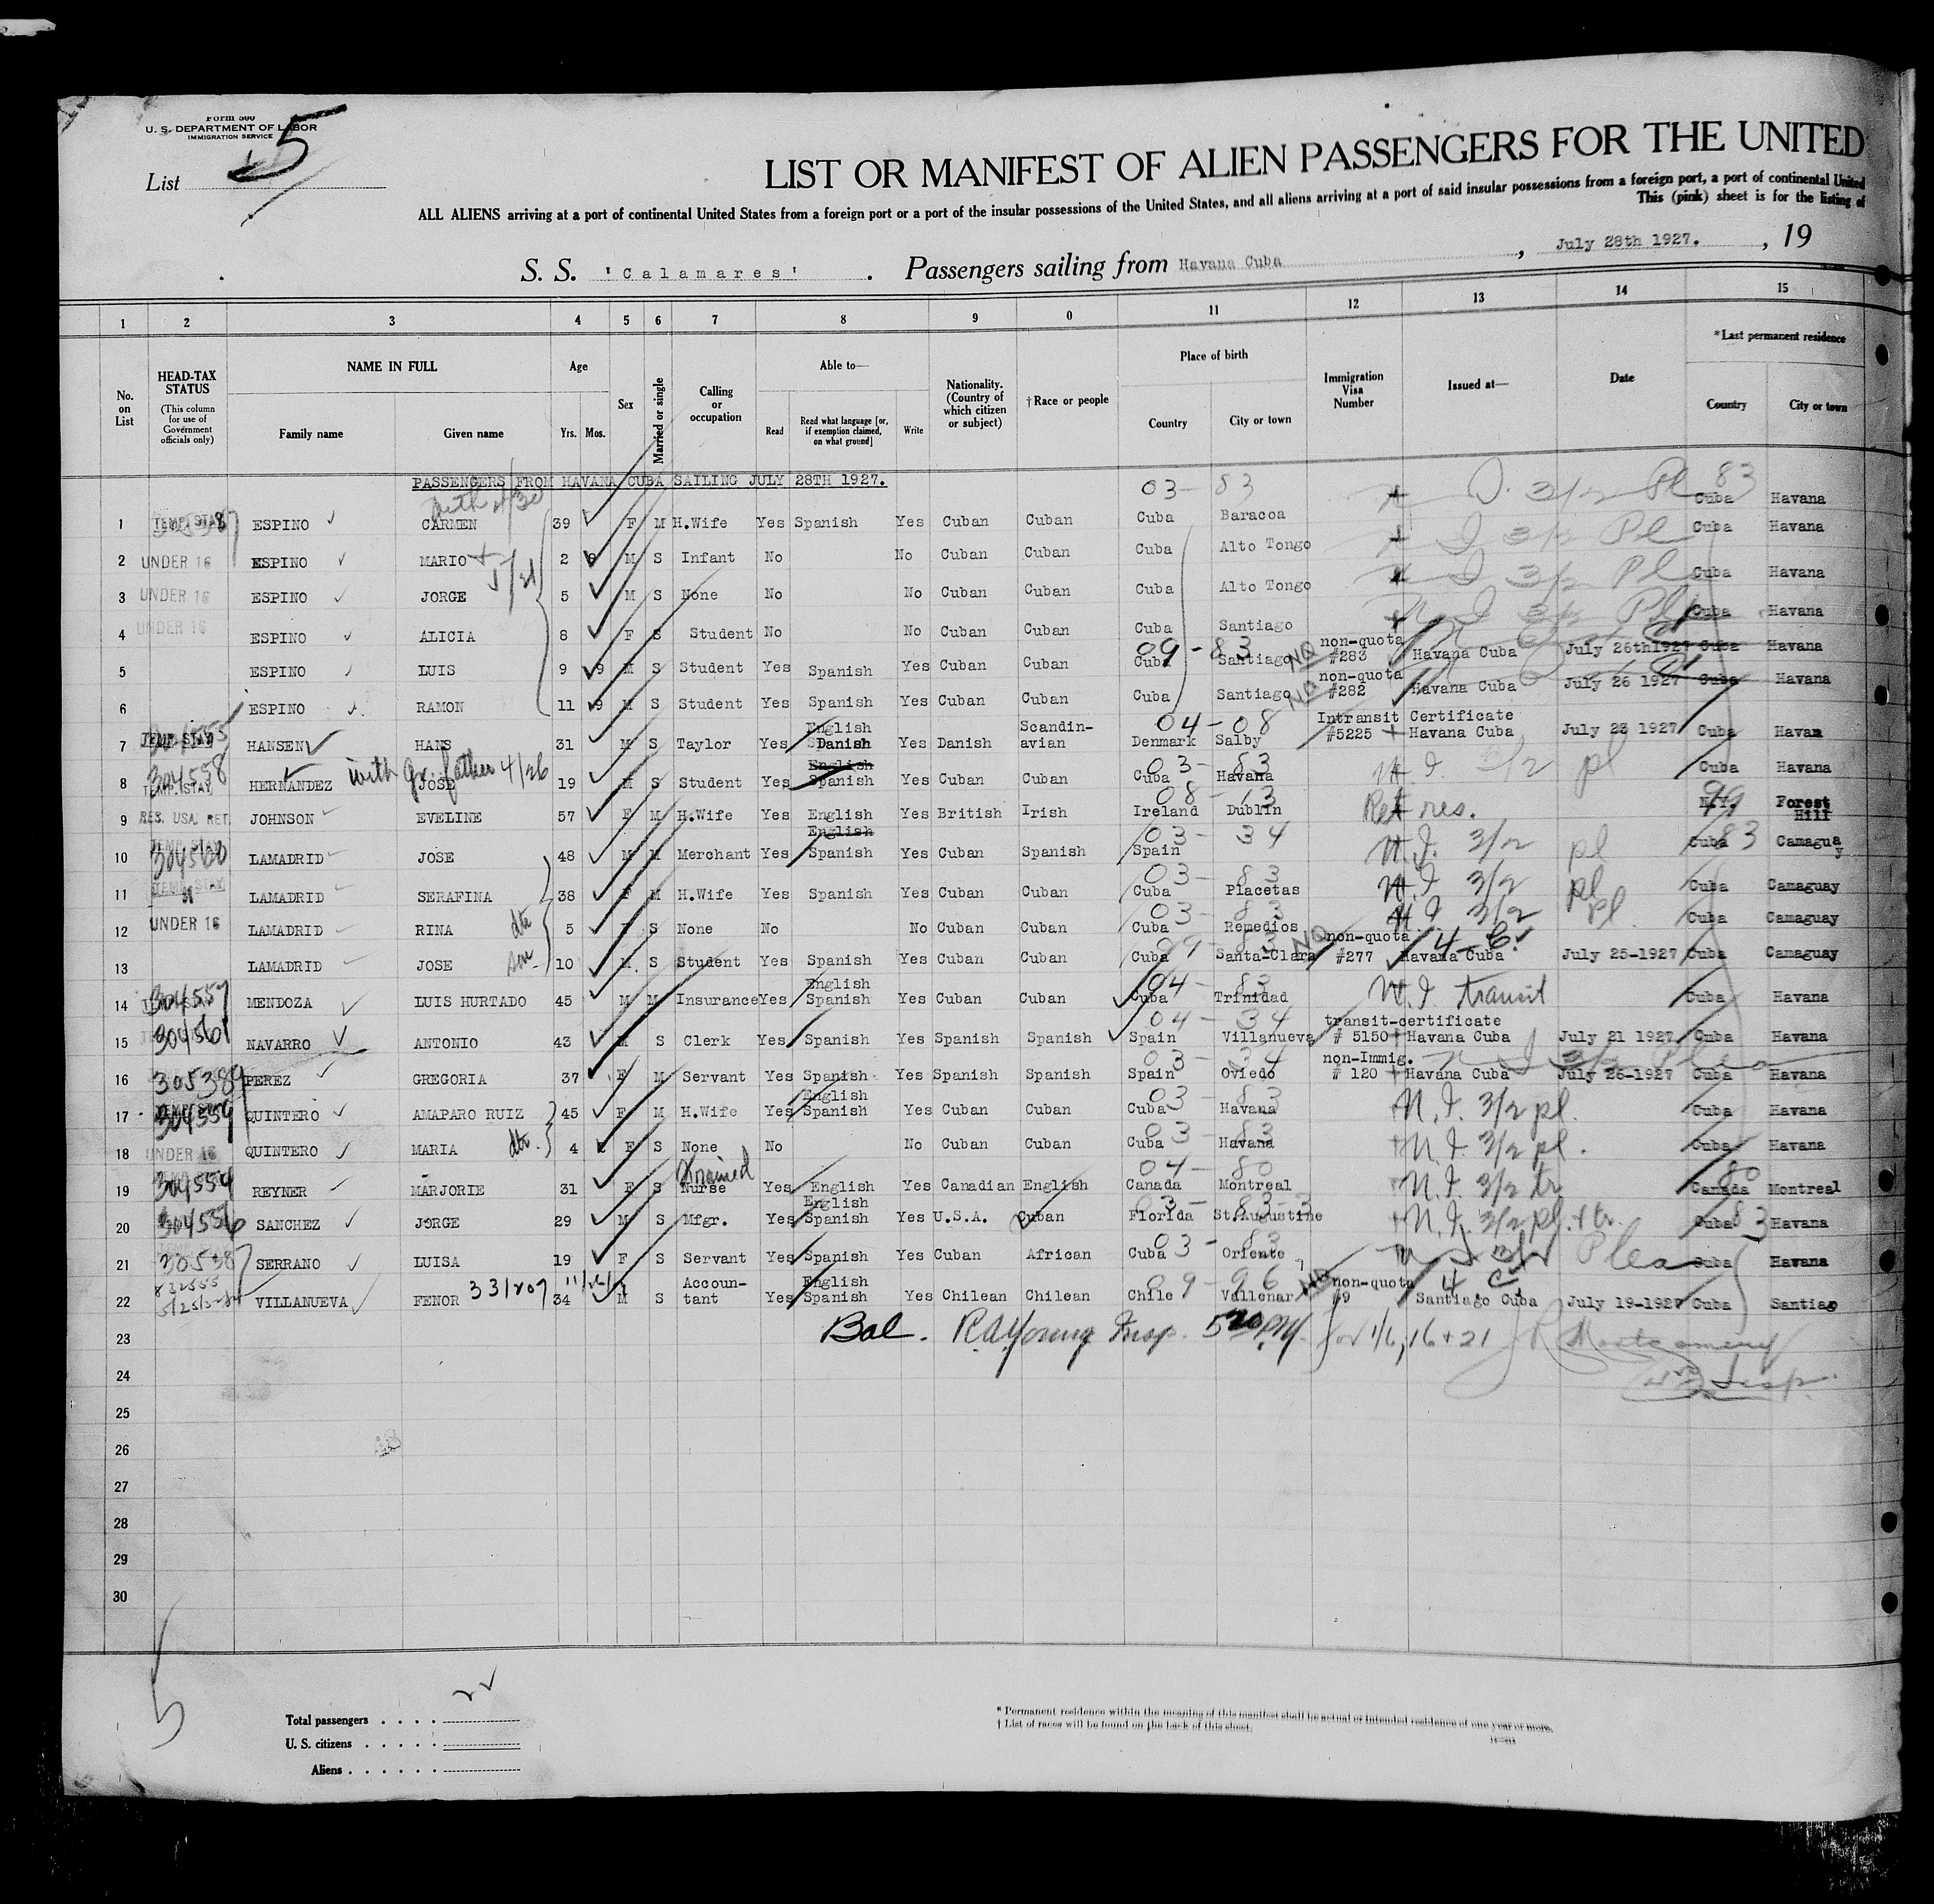 Form 500
U. S. DEPARTMENT OF LABOR
IMMIGRATION SERVICE
List 5
LIST OR MANIFEST OF ALIEN PASSENGERS FOR THE UNITED
ALL ALIENS arriving at a port of continental United States from a foreign port or a port of the insular possessions of the United States, and all aliens arriving at a port of said insular possessions from a foreign port, a port of continental United
This (pink) sheet is for the listing of
S. S. 'Calamares' . Passengers sailing from Havana Cuba , July 28th 1927. , 19
1 2 3 4 5 6 7 8 9 0 11 12 13 14 15
No. on List HEAD-TAX STATUS (This column for use of Government officials only) NAME IN FULL Family name Given name Age Yrs. Mos. Sex Married or single Calling or occupation Able to— Read Read what language [or, if exemption claimed, on what ground] Write Nationality. (Country of which citizen or subject) †Race or people Place of birth Country City or town Immigration Visa Number Issued at— Date *Last permanent residence Country City or town
PASSENGERS FROM HAVANA CUBA SAILING JULY 28TH 1927. 03- 83 83 Cuba Havana
1 TEMP. STAY ESPINO CARMEN 39 F M H.Wife Yes Spanish Yes Cuban Cuban Cuba Baracoa Cuba Havana
2 UNDER 16 ESPINO MARIO 2 M S Infant No No Cuban Cuban Cuba Alto Tongo Cuba Havana
3 UNDER 16 ESPINO JORGE 5 M S None No No Cuban Cuban Cuba Alto Tongo Cuba Havana
4 UNDER 16 ESPINO ALICIA 8 F S Student No No Cuban Cuban Cuba Santiago
5 ESPINO LUIS 9 9 M S Student Yes Spanish Yes Cuban Cuban 09-83 Cuba Santiago NQ non-quota #283 Havana Cuba July 26th1927 Cuba Havana
6 ESPINO RAMON 11 9 M S Student Yes Spanish Yes Cuban Cuban Cuba Santiago NQ non-quota #282 Havana Cuba July 26 1927 Cuba Havana
7 TEMP. STAY HANSEN HANS 31 M S Taylor Yes English Danish Yes Danish Scandin-avian 04-08 Denmark Salby Intransit Certificate #5225 Havana Cuba July 23 1927 Cuba Havan
8 304558 TEMP. STAY HERNANDEZ with gr. father 4/26 JOSE 19 M S Student Yes English Spanish Yes Cuban Cuban 03-83 Cuba Havana N.I. 3/2 pl Cuba Havana
9 RES. USA. RET. JOHNSON EVELINE 57 F M H.Wife Yes English Yes British Irish 08-13 Ireland Dublin Ret res. N.Y. 99 Forest Hill
10 304560 TEMP. STAY LAMADRID JOSE 48 M M Merchant Yes English Spanish Yes Cuban Spanish 03-34 Spain N.I. 3/2 pl Cuba 83 Camaguay
11 TEMP. STAY LAMADRID SERAFINA 38 F M H.Wife Yes Spanish Yes Cuban Cuban 03-83 Cuba Placetas N.I. 3/2 pl Cuba Camaguay
12 UNDER 16 LAMADRID RINA dtr 5 F S None No No Cuban Cuban 03-83 Cuba Remedios N.I. 3/2 pl Cuba Camaguay
13 LAMADRID JOSE son 10 M S Student Yes Spanish Yes Cuban Cuban 09-83 Cuba Santa-Clara NQ non-quota #277 4-C. Havana Cuba July 25-1927 Cuba Camaguay
14 304557 MENDOZA LUIS HURTADO 45 M M Insurance Yes English Spanish Yes Cuban Cuban 04-83 Cuba Trinidad N.I. transit Cuba Havana
15 304561 NAVARRO ANTONIO 43 M S Clerk Yes Spanish Yes Spanish Spanish 04-34 Spain Villanueva transit-certificate # 5150 Havana Cuba July 21 1927 Cuba Havana
16 305389 PEREZ GREGORIA 37 F M Servant Yes Spanish Yes Spanish Spanish 03-34 Spain Oviedo non-Immig. # 120 Havana Cuba July 26-1927 Cuba Havana
17 304559 QUINTERO AMAPARO RUIZ 45 F M H.Wife Yes English Spanish Yes Cuban Cuban 03-83 Cuba Havana N.I. 3/2 pl. Cuba Havana
18 UNDER 16 QUINTERO MARIA dtr. 4 F S None No No Cuban Cuban 03-83 Cuba Havana N.I. 3/2 pl. Cuba Havana
19 304554 REYNER MARJORIE 31 F S trained Nurse Yes English Yes Canadian English 04-80 Canada Montreal N.I. 3/2 tr Canada 80 Montreal
20 304556 SANCHEZ JORGE 29 M S Mfgr. Yes English Spanish Yes U.S.A. Cuban 03-83-3 Florida St.Augustine N.I. 3/2 pl. + tr. Cuba 83 Havana
21 305387 SERRANO LUISA 19 F S Servant Yes Spanish Yes Cuban African 03-83 Cuba Oriente Plea Cuba Havana
22 VILLANUEVA FENOR 331207 34 M S Accoun-tant Yes English Spanish Yes Chilean Chilean 09-96 Chile Vallenar NQ non-quota #9 4 C Santiago Cuba July 19-1927 Cuba Santiago
23 Bal. R.A. Young Insp. 5 20 PM for 1/6, 16 + 21 Montgomery
24 Insp.
25
26
27
28
29
30
Total passengers . . . . 22
U. S. citizens . . . . .
Aliens . . . . . .
5
* Permanent residence within the meaning of this manifest shall be actual or intended residence of one year or more.
† List of races will be found on the back of this sheet.